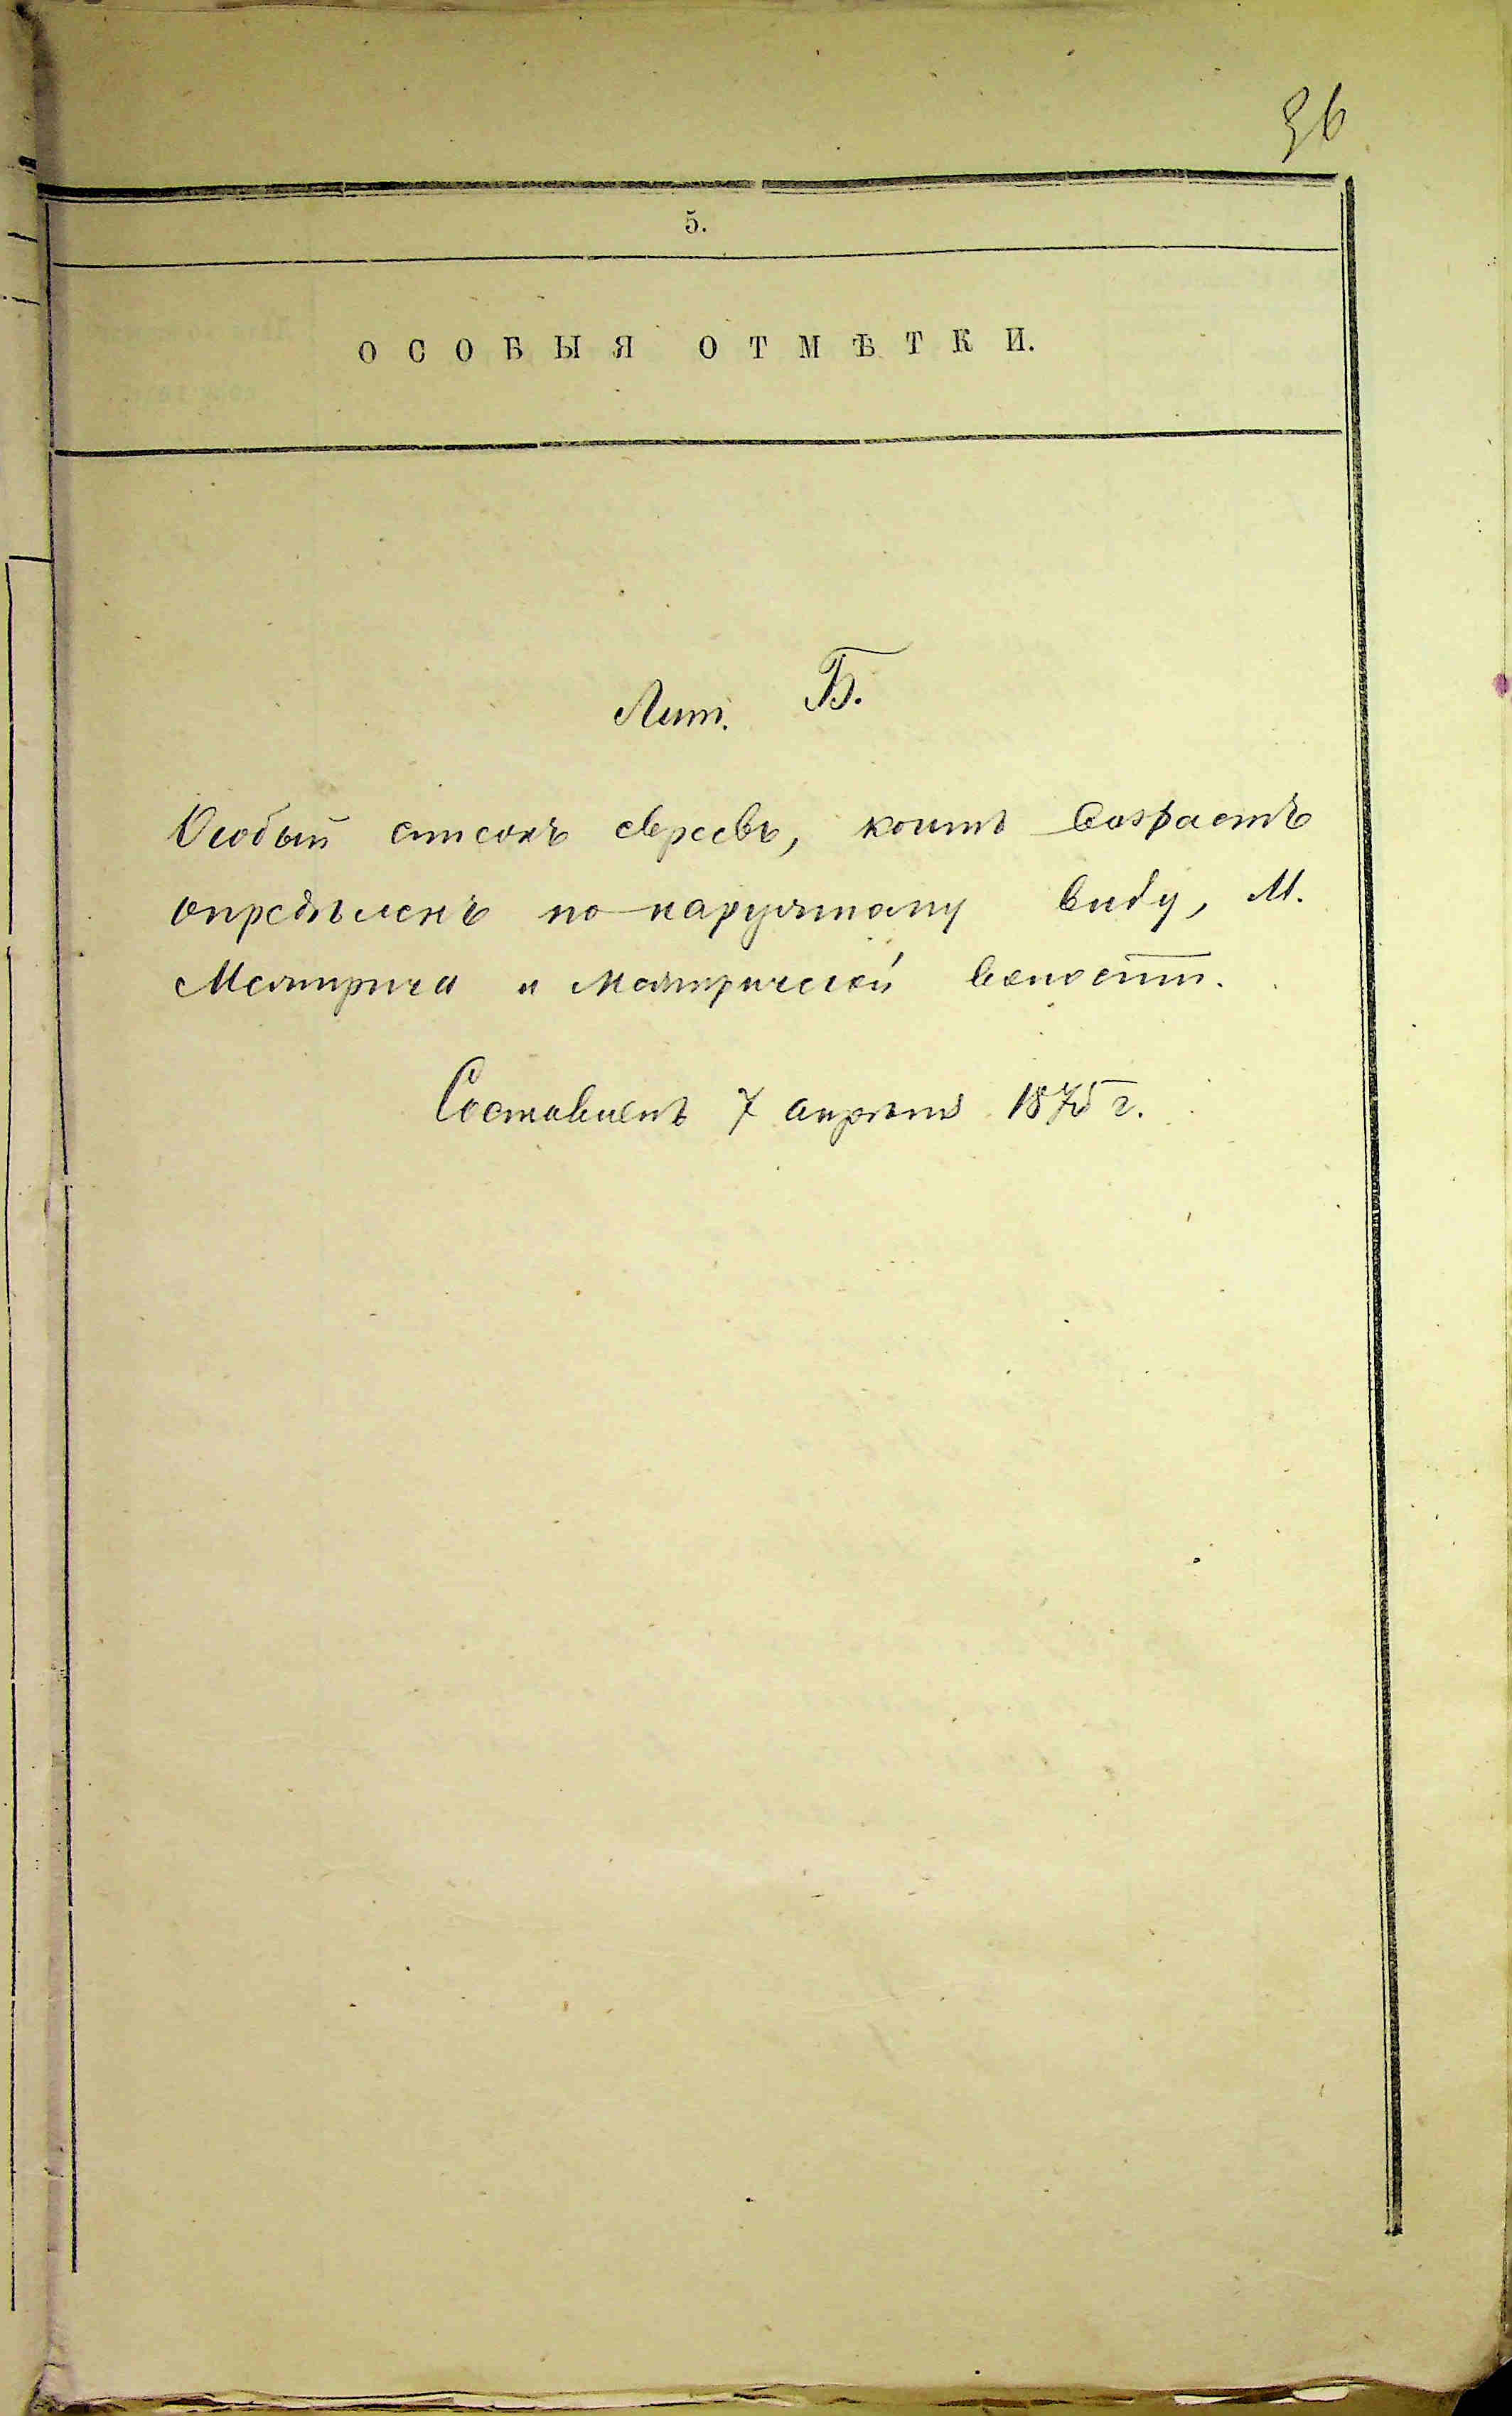 36
5.
ОСОБЫЯ ОТМѢТКИ.
Лит. Б.
Особый списокъ евреевъ, коимъ возрастъ
опредѣленъ по наружному виду, М.
Меджирича и Меджиричской волости.
Составленъ 7 апрѣля 1875 г.